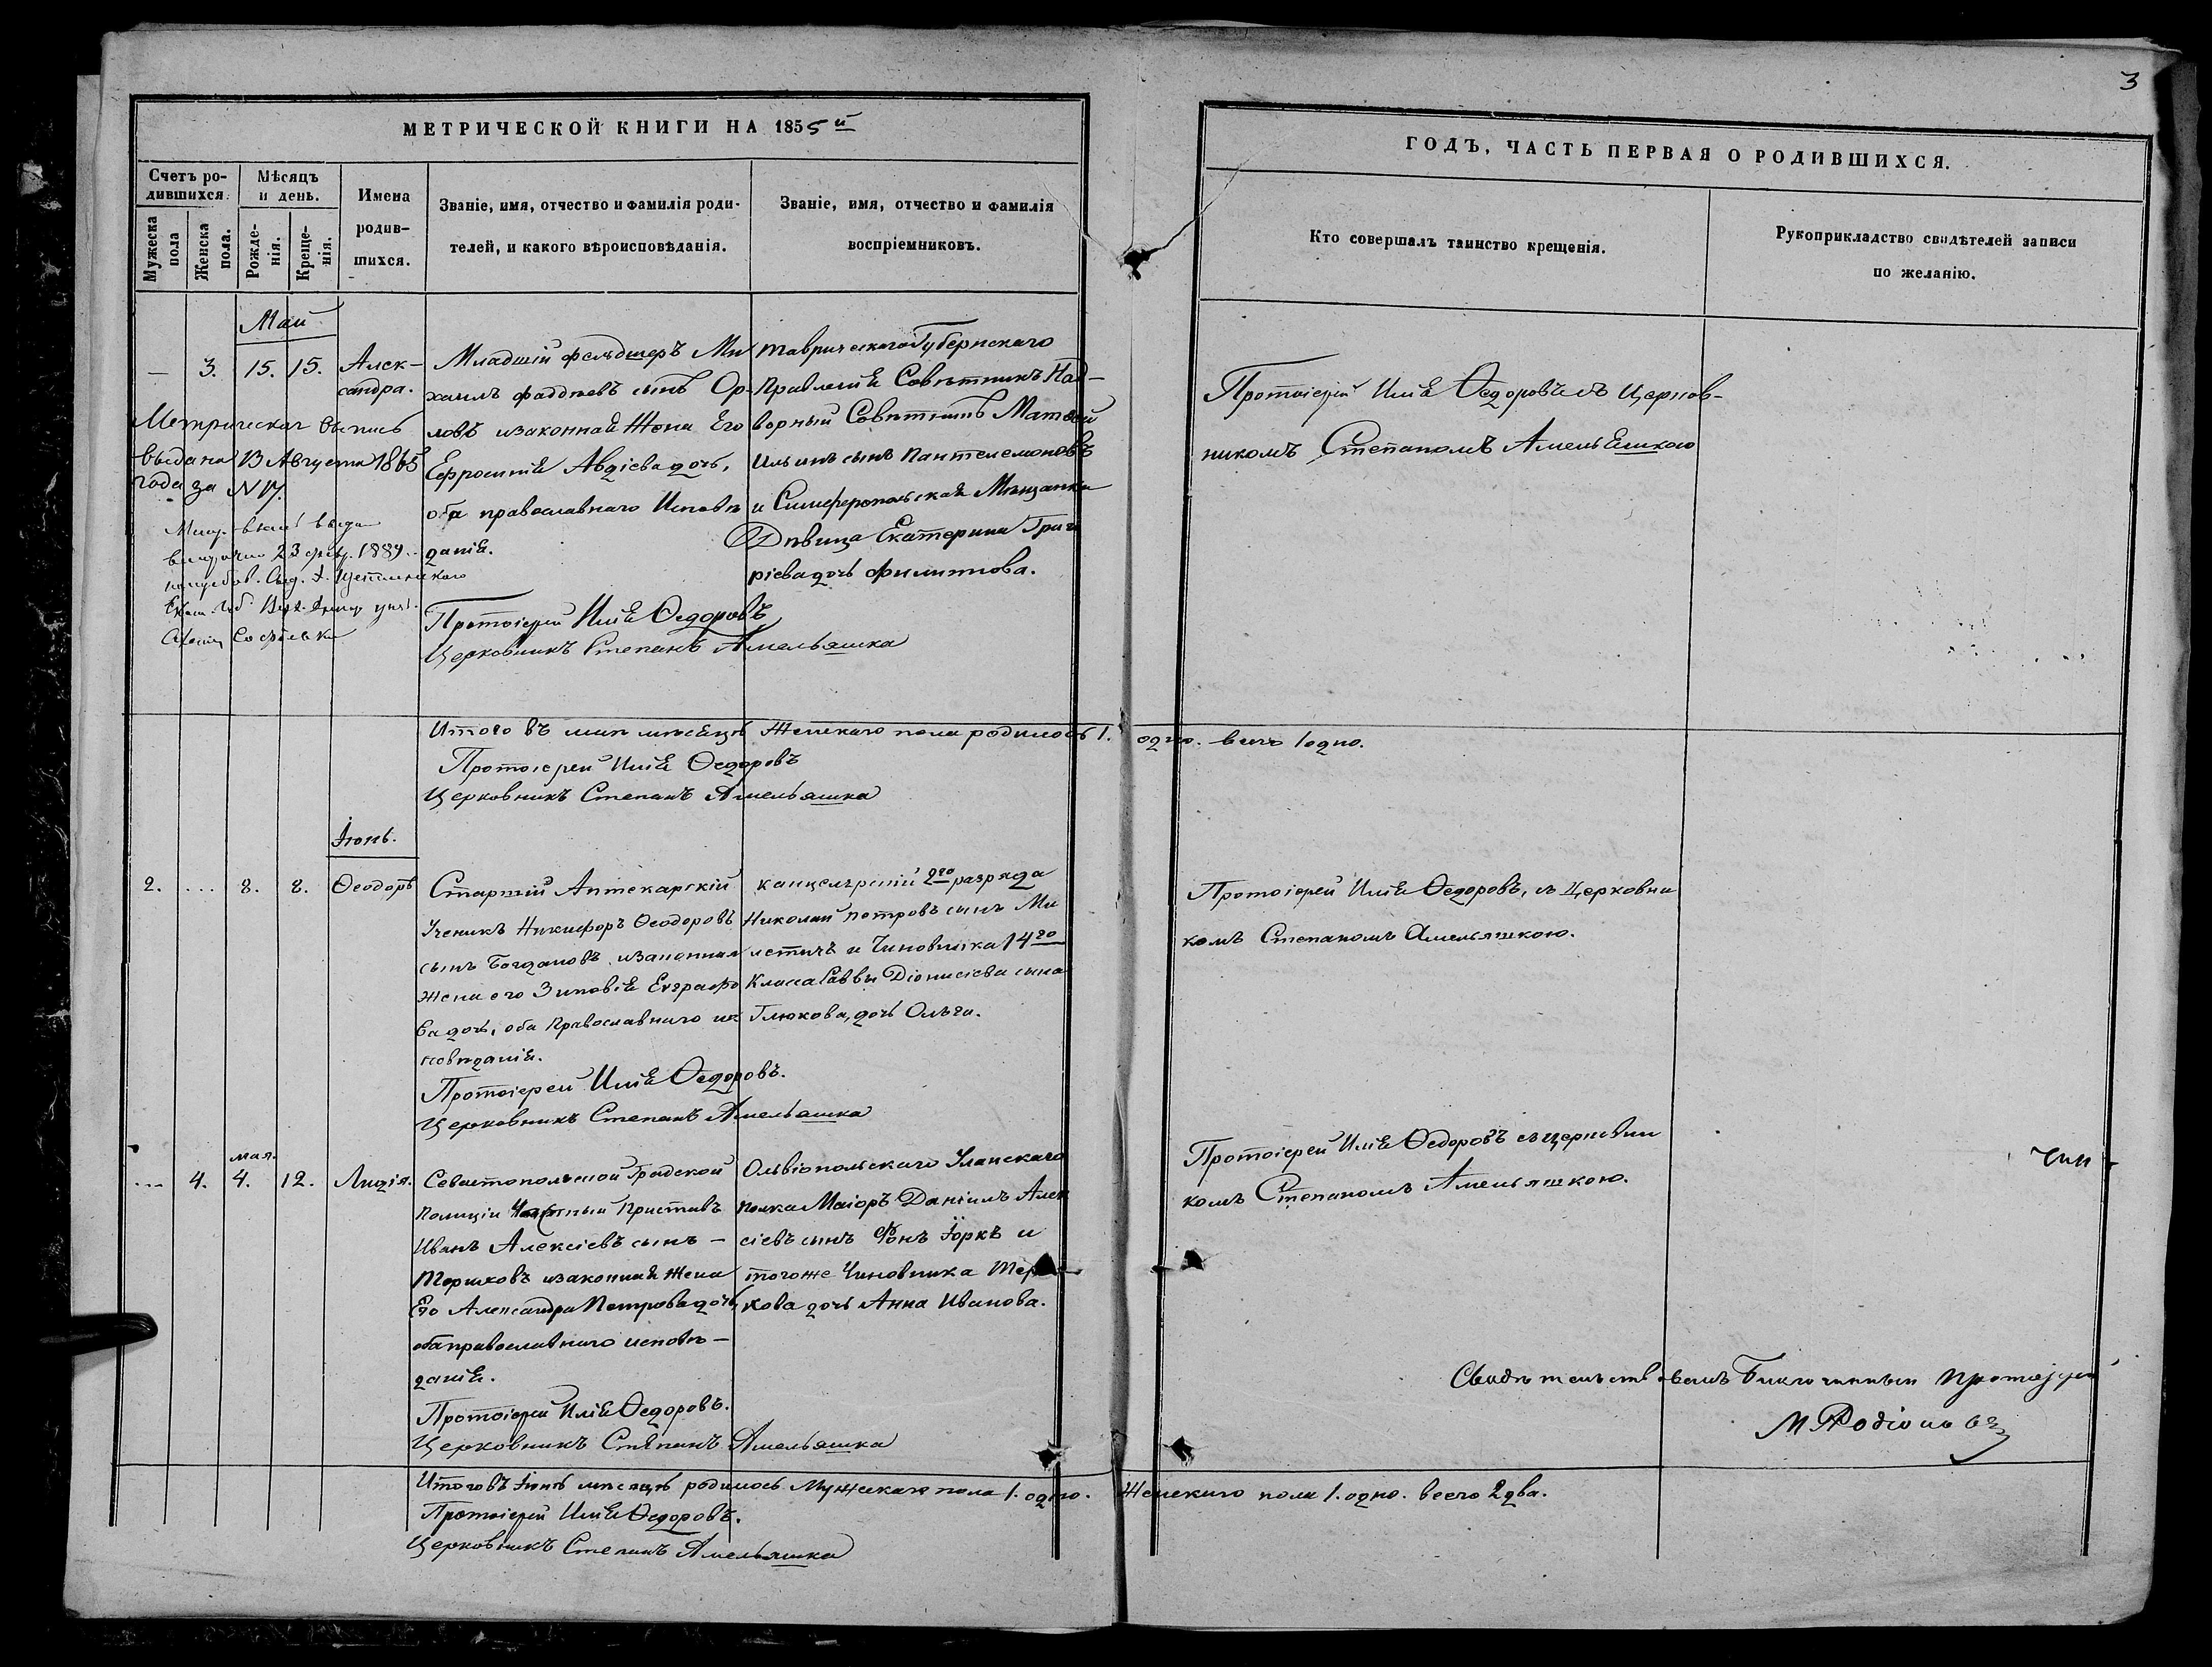 3
МЕТРИЧЕСКОЙ КНИГИ НА 1855й
ГОДЪ, ЧАСТЬ ПЕРВАЯ О РОДИВШИХСЯ.
Счетъ ро-
дившихся.
Мужеска пола
Женска пола.
Мѣсяцъ
и день.
Рожде-
нія.
Креще-
нія.
Имена
родив-
шихся.
Званіе, имя, отчество и фамилія роди-
телей, и какого вѣроисповѣданія.
Званіе, имя, отчество и фамилія
воспріемниковъ.
Кто совершалъ таинство крещенія.
Рукоприкладство свидѣтелей записи
по желанію.
Май
— 3. 15. 15.
Алек-
сандра.
Младшій фельдшеръ Ми
хаилъ Фаддѣевъ сынъ Ор-
ловъ изаконная Жена Его
Ефросинія Авдіева дочь,
оба православнаго Исповѣ
данія.
Таврическаго Губернскаго
Правленія Совѣтникъ Над-
ворный Совѣтникъ Матвѣй
Ильинъ сынъ Пантелемоновъ
и Симферопольская Мѣщанка
Дѣвица Екатерина Григо
ріева дочь Филиппова.
Протоіерей Илія Ѳедоровъ съ церков-
никомъ Степаномъ Амельяшкою
Метрическая выпись
выдана 13 Августа 1865
года за N 17.
выдана
23 февр. 1889
Протоіерей Илія Ѳедоровъ
Церковникъ Степанъ Амельяшка
Итого въ маѣ мѣсяцѣ Женскаго пола родилось 1. одно. всего 1 одно.
Протоіерей Илія Ѳедоровъ
Церковникъ Степанъ Амельяшка
Іюнь.
2. ... 8. 8. Ѳеодоръ
Старшій Аптекарскій
Ученикъ Никифоръ Ѳеодоровъ
сынъ Богдановъ изаконная
жена его Зиновія Евграфо
ва дочь, оба Православнаго ис
повѣданія.
канцелярскій 2го разряда
Николай Петровъ сынъ Ми
летичъ и Чиновника 14го
Класса Саввы Діонисіева сына
Глюкова, дочь Ольга.
Протоіерей Илія Ѳедоровъ, съ Церковни
комъ Степаномъ Амельяшкою.
Протоіерей Илія Ѳедоровъ.
Церковникъ Степанъ Амельяшка
мая.
... 4. 4. 12. Лидія.
Севастопольской Градской
Полиціи Частный Приставъ
Иванъ Алексіевъ сынъ —
Терпковъ изаконная жена
Его Александра Петрова дочь,
оба православнаго исповѣ-
данія.
Ольвіопольскаго Уланскаго
полка Маіоръ Даніилъ Алек
сіевъ сынъ Фонъ Іоркъ и
тогоже Чиновника Терп-
кова дочь Анна Иванова.
Протоіерей Илія Ѳедоровъ съ церковни
комъ Степаномъ Амельяшкою.
Протоіерей Илія Ѳедоровъ.
Церковникъ Степанъ Амельяшка
Свидѣтельствовалъ Благочинный Протоіерей
М Родіоновъ
Итого въ Іюнѣ мѣсяцѣ родилось Мужескаго пола 1. одно. Женскаго пола 1. одно. всего 2 два.
Протоіерей Илія Ѳедоровъ.
Церковникъ Степанъ Амельяшка